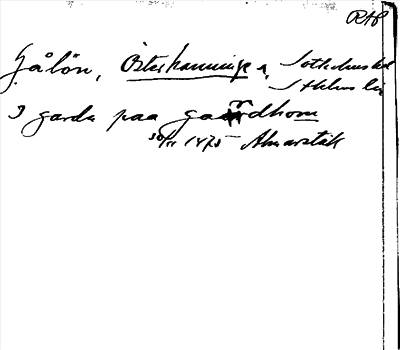 RAP
Gålön, Österhanninge s, Sotholms hd
Sthlms län
I garda paa gaardhom
30/11 1475 Almarstäk